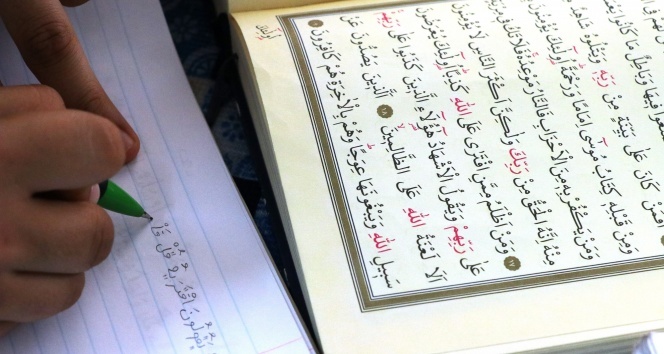 صَنَعُوا فِيهَا وَبَاطِلٌ مَا كَانُوا
اَفَمَنْ كَانَ عَلٰى بَيِّنَةٍ مِنْ رَبِّهِ وَيَتْلُوهُ شَاهِدٌ
وَمِنْ قَبْلِهِ كِتَابُ مُوسٰى اِمَامًا وَرَحْمَةً اُولٰئِكَ يُؤْمِنُونَ
وَمَنْ يَكْفُرْ بِهِ مِنَ الْاَحْزَابِ فَالنَّارُ مَوْعِدُهُ فَلَا تَكُ فِي
مِنْهُ اِنَّهُ الْحَقُّ مِنْ رَبِّكَ وَلٰكِنَّ اَكْثَرَ النَّاسِ لَا يُؤْمِنُونَ
١٧ وَمَنْ اَظْلَمُ مِمَّنِ افْتَرٰى عَلَى اللّٰهِ كَذِبًا اُولٰئِكَ يُعْرَضُونَ
عَلٰى رَبِّهِمْ وَيَقُولُ الْاَشْهَادُ هٰؤُلَاءِ الَّذِينَ كَذَبُوا عَلٰى رَبِّهِمْ
اَلَا لَعْنَةُ اللّٰهِ عَلَى الظَّالِمِينَ ١٨ اَلَّذِينَ يَصُدُّونَ عَنْ
سَبِيلِ اللّٰهِ وَيَبْغُونَهَا عِوَجًا وَهُمْ بِالْاٰخِرَةِ هُمْ كَافِرُونَ ١٩
يَقُولُونَ افْتَرٰيهُ قُلْ فَأْ